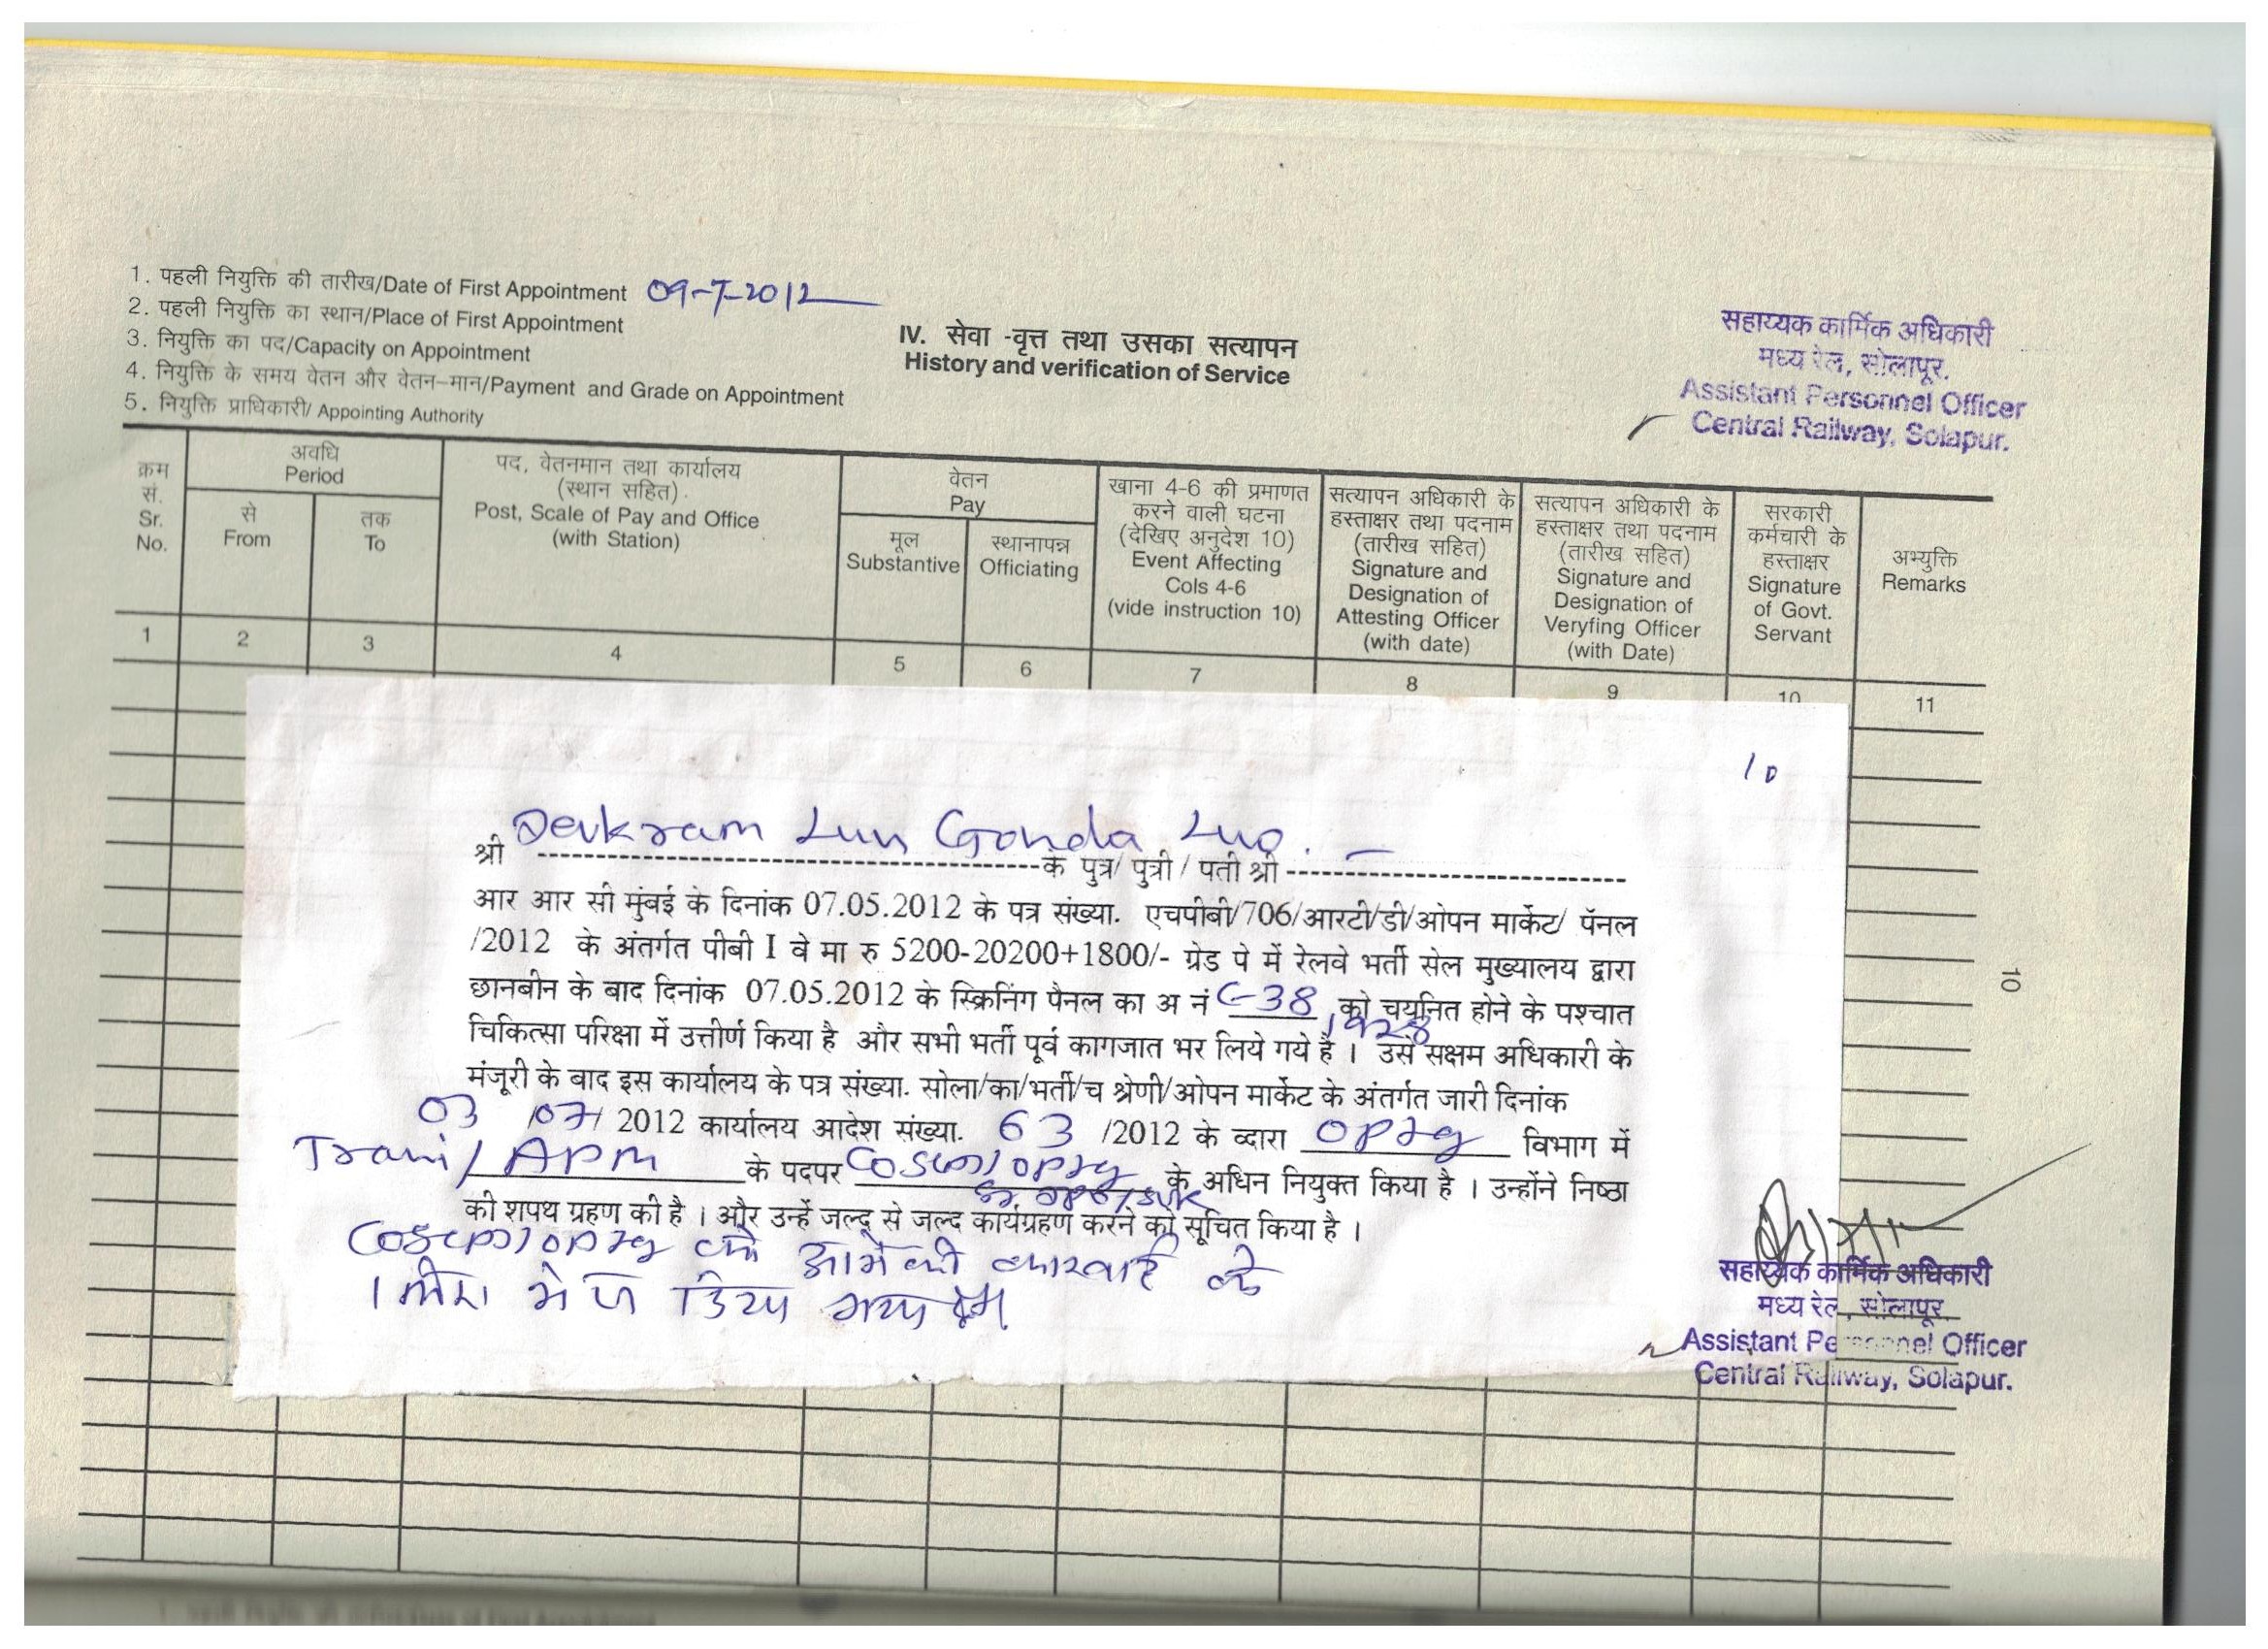 1. पहली नियुक्ति की तारीख/Date of First Appointment 09-7-2012
2. पहली नियुक्ति का स्थान/Place of First Appointment
3. नियुक्ति का पद/Capacity on Appointment
4. नियुक्ति के समय वेतन और वेतन-मान/Payment and Grade on Appointment
5. नियुक्ति प्राधिकारी/ Appointing Authority
IV. सेवा -वृत्त तथा उसका सत्यापन
History and verification of Service
सहाय्यक कार्मिक अधिकारी
मध्य रेल, सोलापूर.
Assistant Personnel Officer
Central Railway, Solapur.
क्रम
सं.
Sr.
No.
अवधि
Period
से
From
तक
To
पद, वेतनमान तथा कार्यालय
(स्थान सहित).
Post, Scale of Pay and Office
(with Station)
वेतन
Pay
मूल
Substantive
स्थानापन्न
Officiating
खाना 4-6 की प्रमाणत
करने वाली घटना
(देखिए अनुदेश 10)
Event Affecting
Cols 4-6
(vide instruction 10)
सत्यापन अधिकारी के
हस्ताक्षर तथा पदनाम
(तारीख सहित)
Signature and
Designation of
Attesting Officer
(with date)
सत्यापन अधिकारी के
हस्ताक्षर तथा पदनाम
(तारीख सहित)
Signature and
Designation of
Veryfing Officer
(with Date)
सरकारी
कर्मचारी के
हस्ताक्षर
Signature
of Govt.
Servant
अभ्युक्ति
Remarks
1 2 3 4 5 6 7 8 9 10 11
10
Devkram Gonda
श्री ---के पुत्र/ पुत्री / पती श्री---
आर आर सी मुंबई के दिनांक 07.05.2012 के पत्र संख्या. एचपीबी/706/आरटी/डी/ओपन मार्केट/ पॅनल
/2012 के अंतर्गत पीबी I वे मा रु 5200-20200+1800/- ग्रेड पे में रेलवे भर्ती सेल मुख्यालय द्वारा
छानबीन के बाद दिनांक 07.05.2012 के स्क्रिनिंग पैनल का अ नं G-38 को चयनित होने के पश्चात
चिकित्सा परिक्षा में उत्तीर्ण किया है और सभी भर्ती पूर्व कागजात भर लिये गये है । उसे सक्षम अधिकारी के
मंजूरी के बाद इस कार्यालय के पत्र संख्या. सोला/का/भर्ती/च श्रेणी/ओपन मार्केट के अंतर्गत जारी दिनांक
03 /07/ 2012 कार्यालय आदेश संख्या. 63 /2012 के व्दारा optg विभाग में
APM के पदपर optg के अधिन नियुक्त किया है । उन्होंने निष्ठा
की शपथ ग्रहण की है । और उन्हें जल्द से जल्द कार्यग्रहण करने को सूचित किया है ।
optg को आगे की कारवाई के
लिए भेज दिया गया है।
10
सहाय्यक कार्मिक अधिकारी
मध्य रेल, सोलापूर
Assistant Personnel Officer
Central Railway, Solapur.